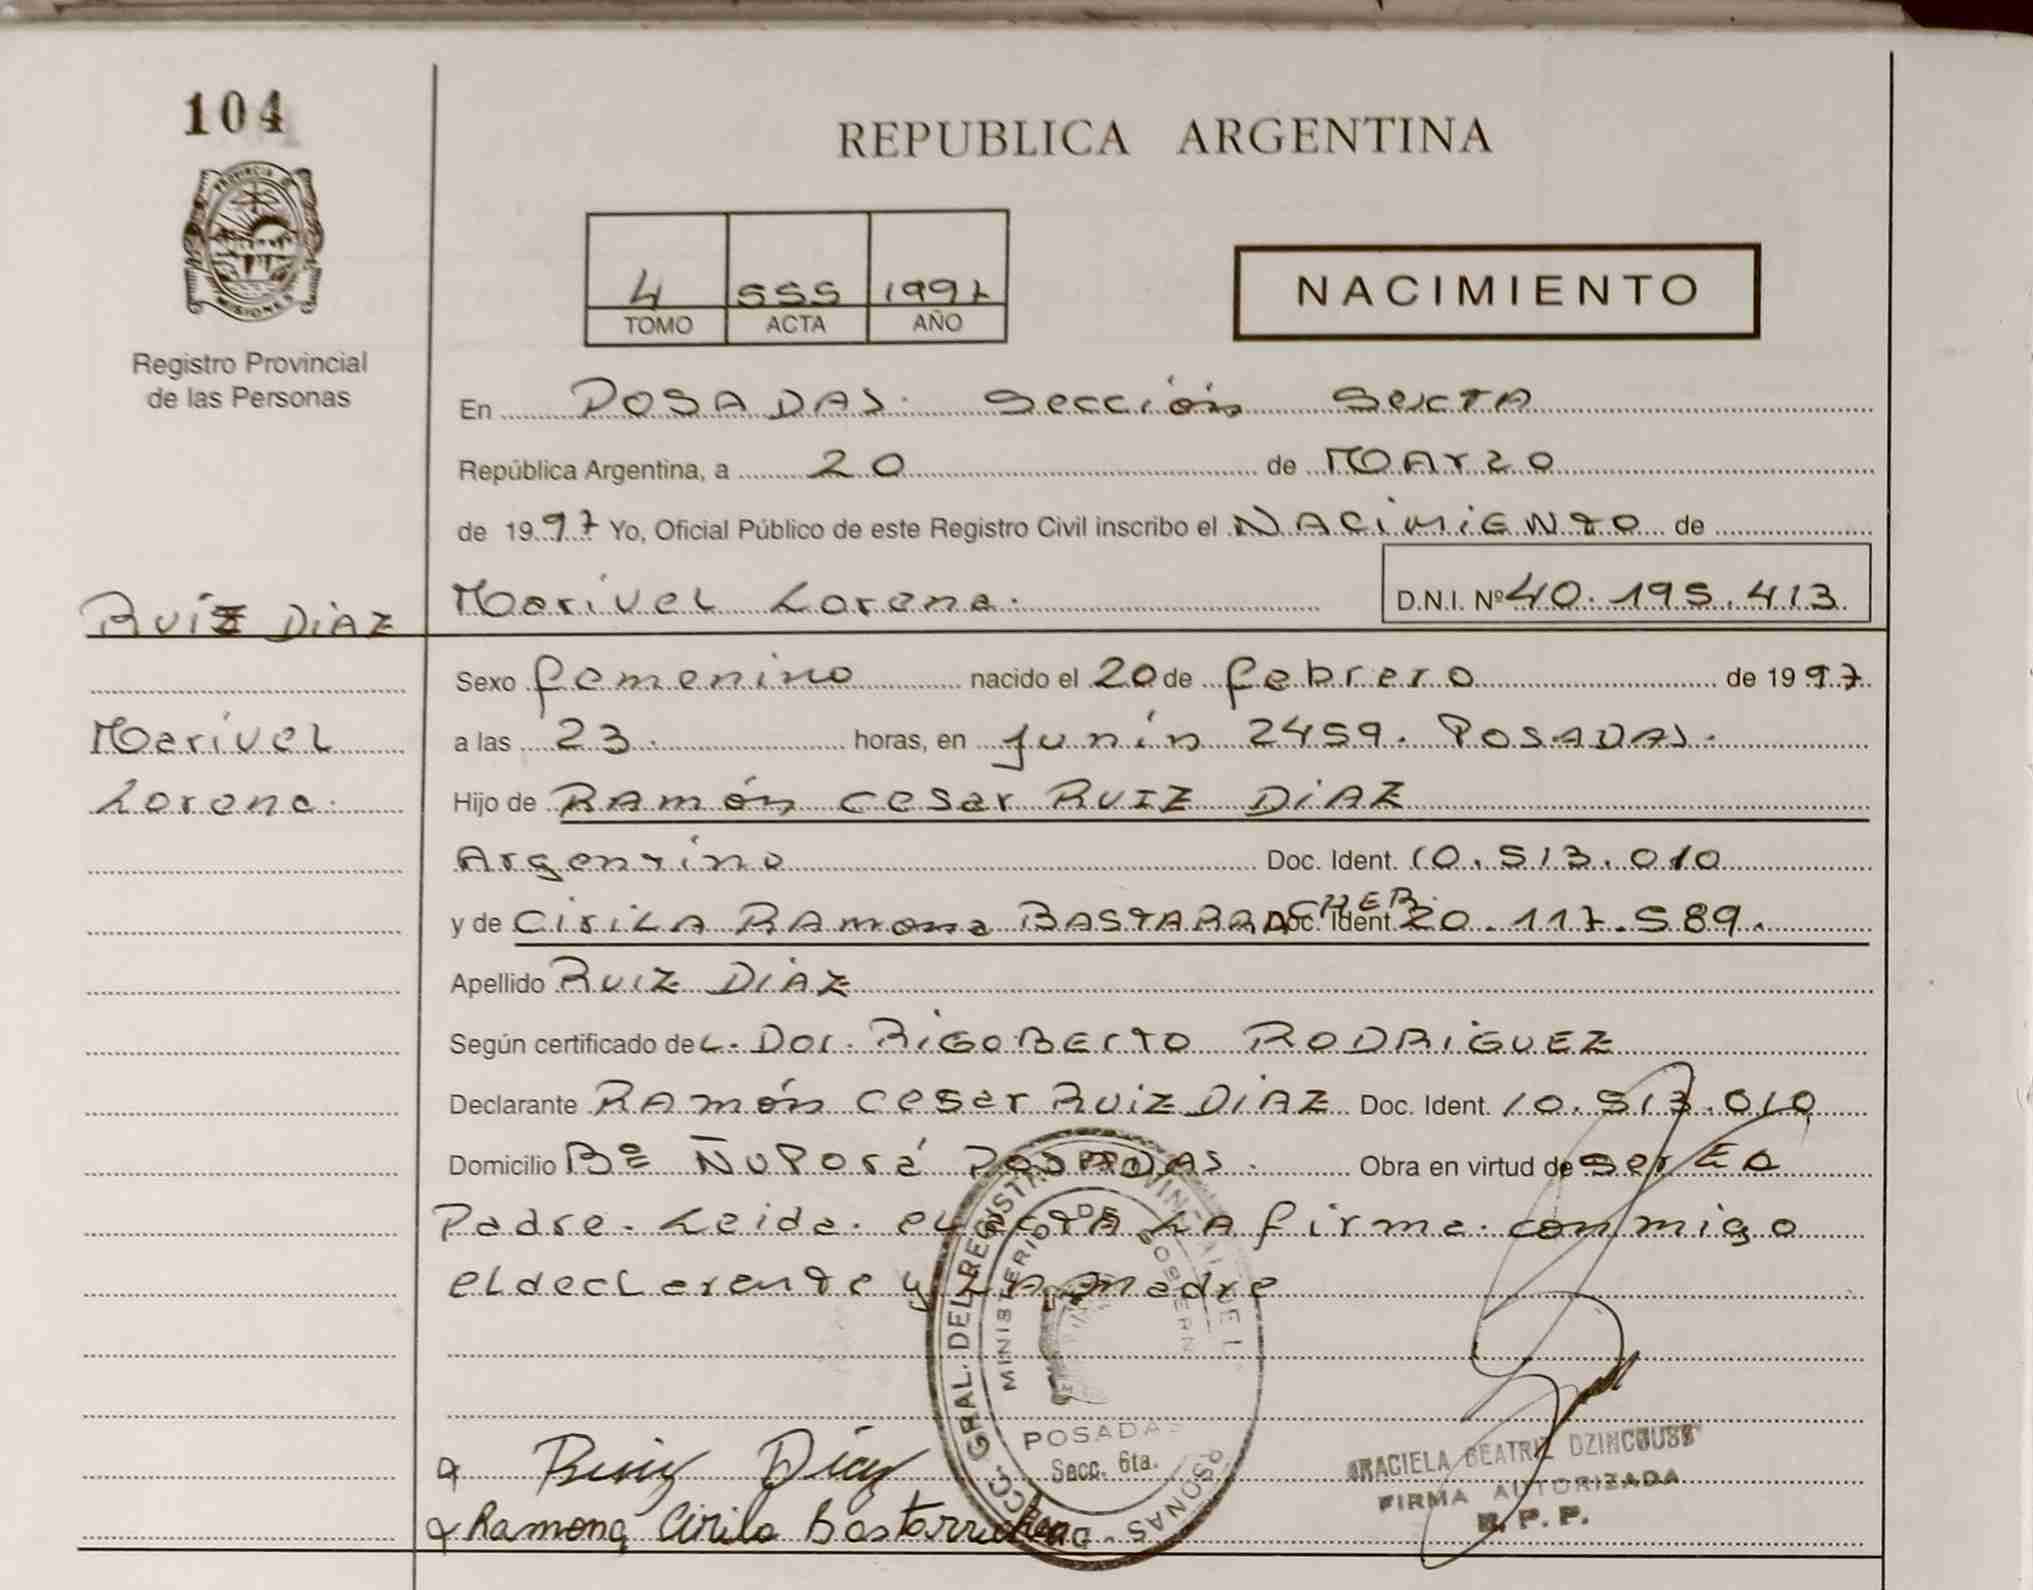 104
REPUBLICA ARGENTINA
PROVINCIA DE MISIONES
4 555 1997
TOMO ACTA AÑO
NACIMIENTO
Registro Provincial
de las Personas
En POSADAS. Sección Sexta
República Argentina, a 20 de Marzo
de 1997 Yo, Oficial Público de este Registro Civil inscribo el NACIMIENTO de
RUIZ DIAZ Marivel Lorena. D.N.I. Nº 40.195.413
Sexo femenino nacido el 20 de febrero de 1997
Marivel a las 23. horas, en Junín 2459. POSADAS.
Lorena. Hijo de RAMÓN CESAR RUIZ DIAZ
Argentino Doc. Ident. 10.513.010
y de CIRILA RAMONA Doc. Ident. 20.117.589.
Apellido RUIZ DIAZ
Según certificado del. Dor. RIGOBERTO RODRIGUEZ
Declarante RAMÓN CESAR RUIZ DIAZ Doc. Ident. 10.513.010
Domicilio Bº ÑUPORÁ POSADAS. Obra en virtud de ser EL
Padre. Leida. el ACTA LA firma. conmigo
el declarante y LA madre
Ruiz Diaz
Ramona Cirila
GRAL. DEL REGISTRO PROVINCIAL DE L
MINISTERIO DE GOBIERN
POSADAS
Secc. 6ta.
GRACIELA BEATRIZ
FIRMA AUTORIZADA
R. P. P.